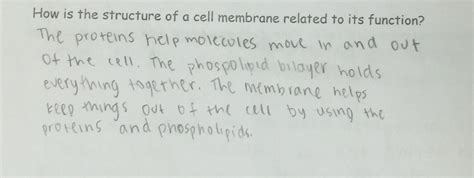 How is the structure of a cell membrane related to its function?
The proteins help molecules move in and out
of the cell. The phospolipid bilayer holds
everything together. The membrane helps
keep things out of the cell by using the
proteins and phospholipids.